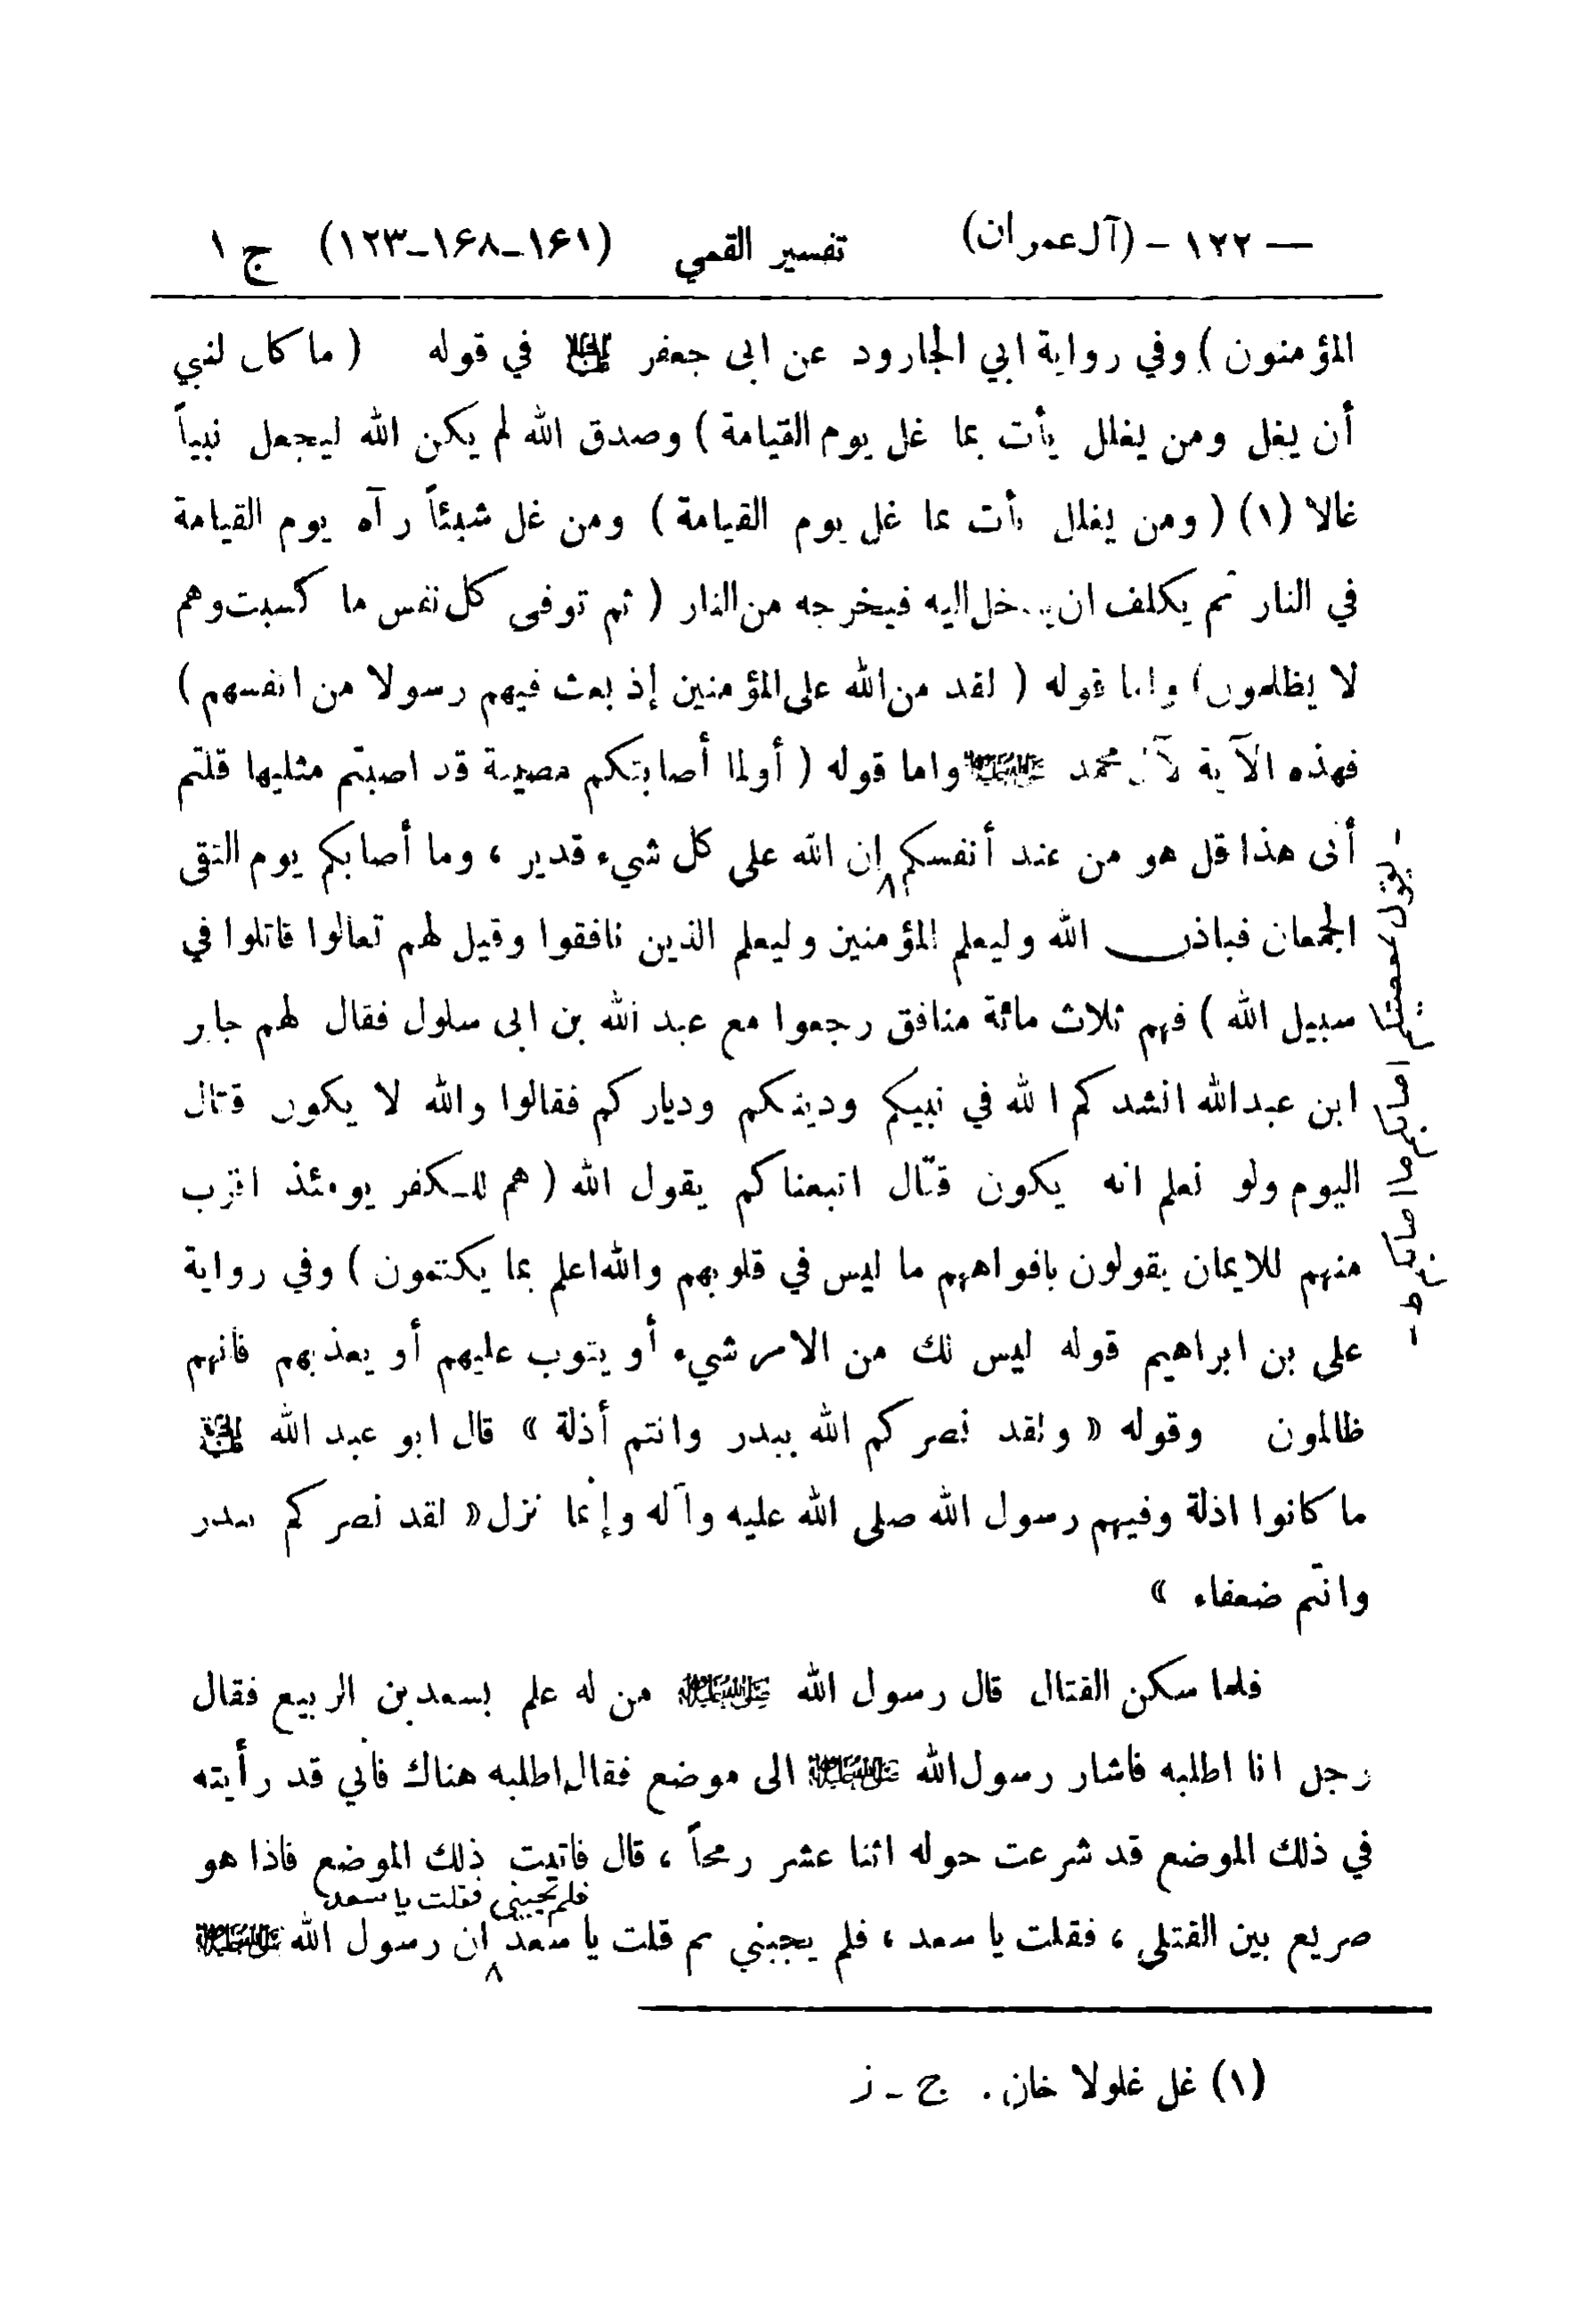 — ١٢٢ - (آل عمران) تفسير القمي (١۶١-١۶٨-١٢٣) ج ١
المؤمنون ) وفي رواية ابي الجارود عن ابى جعفر عليه السلام في قوله ( ما كان لنبي
أن يغل ومن يغلل يأت بما غل يوم القيامة ) وصدق الله لم يكن الله ليجعل نبياً
غالا (١) ( ومن يغلل يأت بما غل يوم القيامة ) ومن غل شيئاً رآه يوم القيامة
في النار ثم يكلف ان يدخل اليه فيخرجه من النار ( ثم توفى كل نفس ما كسبت وهم
لا يظلمون) واما قوله ( لقد من الله على المؤمنين إذ بعث فيهم رسولا من انفسهم )
فهذه الآية لآل محمد واما قوله ( أولما أصابتكم مصيبة قد اصبتم مثليها قلتم
أنى هذا قل هو من عند أنفسكم ان الله على كل شيء قدير ، وما أصابكم يوم التقى
الجمعان فباذن الله وليعلم المؤمنين وليعلم الذين نافقوا وقيل لهم تعالوا قاتلوا في
سبيل الله ) فهم ثلاث مائة منافق رجعوا مع عبد الله بن ابى سلول فقال لهم جابر
ابن عبدالله انشدكم الله في نبيكم ودينكم ودياركم فقالوا والله لا يكون قتال
اليوم ولو نعلم انه يكون قتال اتبعناكم يقول الله ( هم للكفر يومئذ اقرب
منهم للايمان يقولون بافواههم ما ليس في قلوبهم والله اعلم بما يكتمون ) وفي رواية
على بن ابراهيم قوله ليس لك من الامر شيء أو يتوب عليهم أو يعذبهم فانهم
ظالمون وقوله « ولقد نصركم الله ببدر وانتم أذلة » قال ابو عبد الله عليه السلام
ما كانوا اذلة وفيهم رسول الله صلى الله عليه وآله وإنما نزل « لقد نصركم ببدر
وانتم ضعفاء »
فلما سكن القتال قال رسول الله ﷺ من له علم بسعد بن الربيع فقال
رجل انا اطلبه فاشار رسول الله ﷺ الى موضع فقال اطلبه هناك فاني قد رأيته
في ذلك الموضع قد شرعت حوله اثنا عشر رمحاً ، قال فاتيت ذلك الموضع فاذا هو
فلم يجيبني فقلت يا سعد
صريع بين القتلى ، فقلت يا سعد ، فلم يجبني ثم قلت يا سعد ان رسول الله ﷺ
(١) غل غلولا خان . ج - ز